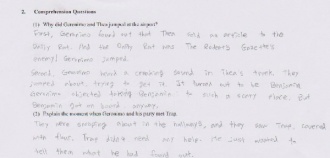 2. Comprehension Questions
(1) Why did Geronimo and Thea jumped at the airport?
First, Geronimo found out that Thea sold an article to the
Daily Rat. And the Daily Rat was The Rodent's Gazette's
enemy! Geronimo jumped.
Second, Geronimo heard a creaking sound in Thea's trunk. They
jumped about, trying to see it. It turned out to be Benjamin.
Geronimo objected bringing Benjamin to such a scary place. But
Benjamin got on board anyway.
(2) Explain the moment when Geronimo and his party met Trap.
They were creeping about in the hallways, and they saw Trap, covered
with flour. Trap didn't need any help. He just wanted to
tell them what he had found out.